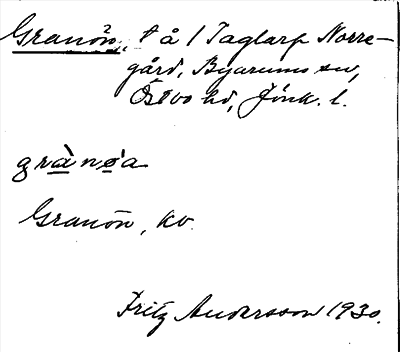 Granön, t å 1 Taglarp Norre-
gård, Byarums sn,
Östbo hd, Jönk. l.
grànǿa
Granön, kv.
Fritz Andersson 1930.